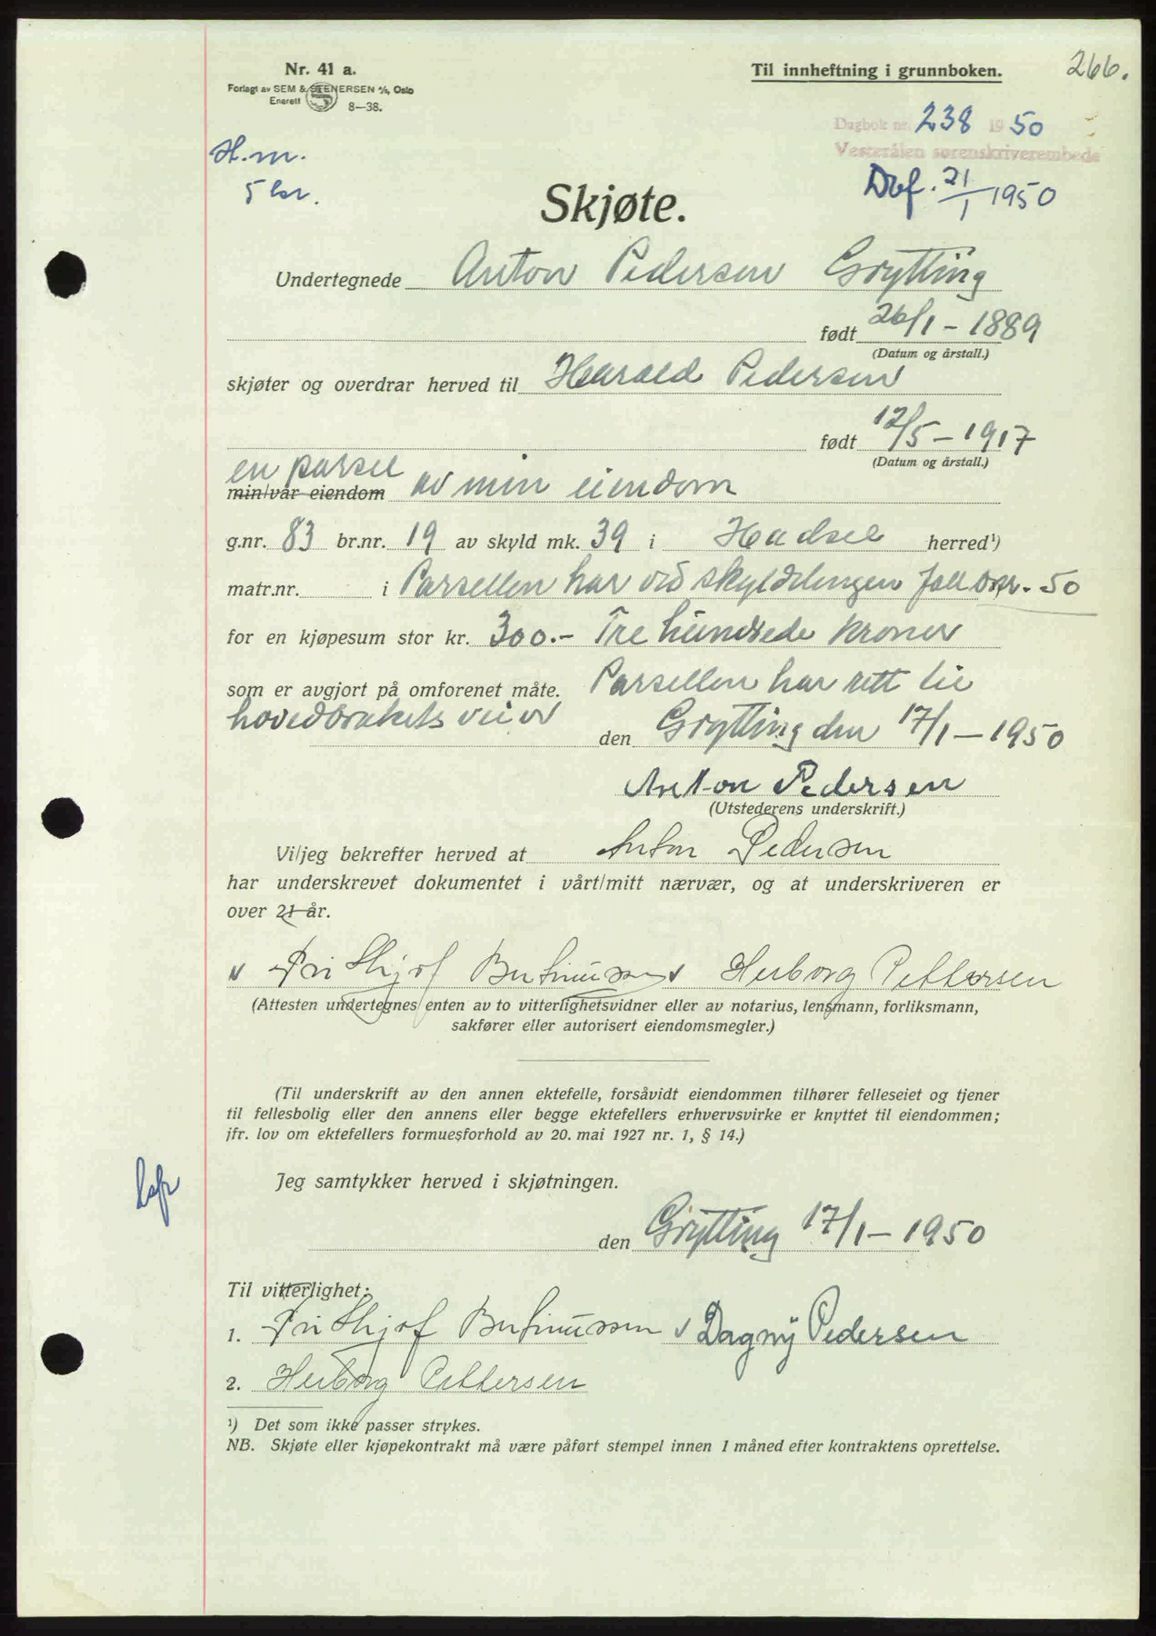 Nr. 41 a.
Forlagt av SEM & STENERSEN A/S, Oslo
Enerett 8—38.
Til innheftning i grunnboken.
266.
Dagbok nr. 238 19 50
Vesterålen sorenskriverembede
Dbf. 21/1 1950
H.m.
5 kr.
Skjøte.
Undertegnede Anton Pedersen Grytting
født 26/1 - 1889
(Datum og årstall.)
skjøter og overdrar herved til Harald Pedersen
født 12/5 - 1917
(Datum og årstall.)
en parsel
min/vår eiendom av min eiendom
g.nr. 83 br.nr. 19 av skyld mk. 39 i Hadsel herred¹)
matr.nr. i Parsellen har ved skyldelingen fått br.nr. 50
for en kjøpesum stor kr. 300.- Tre hundrede kroner
som er avgjort på omforenet måte. Parsellen har rett til
hovedbrukets veier
den Grytting den 17/1 - 1950
Anton Pedersen
(Utstederens underskrift.)
Vi/jeg bekrefter herved at Anton Pedersen
har underskrevet dokumentet i vårt/mitt nærvær, og at underskriveren er
over 21 år.
Frithjof Bertinussen Herborg Pettersen
(Attesten undertegnes enten av to vitterlighetsvidner eller av notarius, lensmann, forliksmann,
sakfører eller autorisert eiendomsmegler.)
(Til underskrift av den annen ektefelle, forsåvidt eiendommen tilhører felleseiet og tjener
til fellesbolig eller den annens eller begge ektefellers erhvervsvirke er knyttet til eiendommen;
jfr. lov om ektefellers formuesforhold av 20. mai 1927 nr. 1, § 14.)
Jeg samtykker herved i skjøtningen.
den Grytting 17/1 - 1950
Til vitterlighet:
1. Frithjof Bertinussen Dagny Pedersen
2. Herborg Pettersen
¹) Det som ikke passer strykes.
NB. Skjøte eller kjøpekontrakt må være påført stempel innen 1 måned efter kontraktens oprettelse.